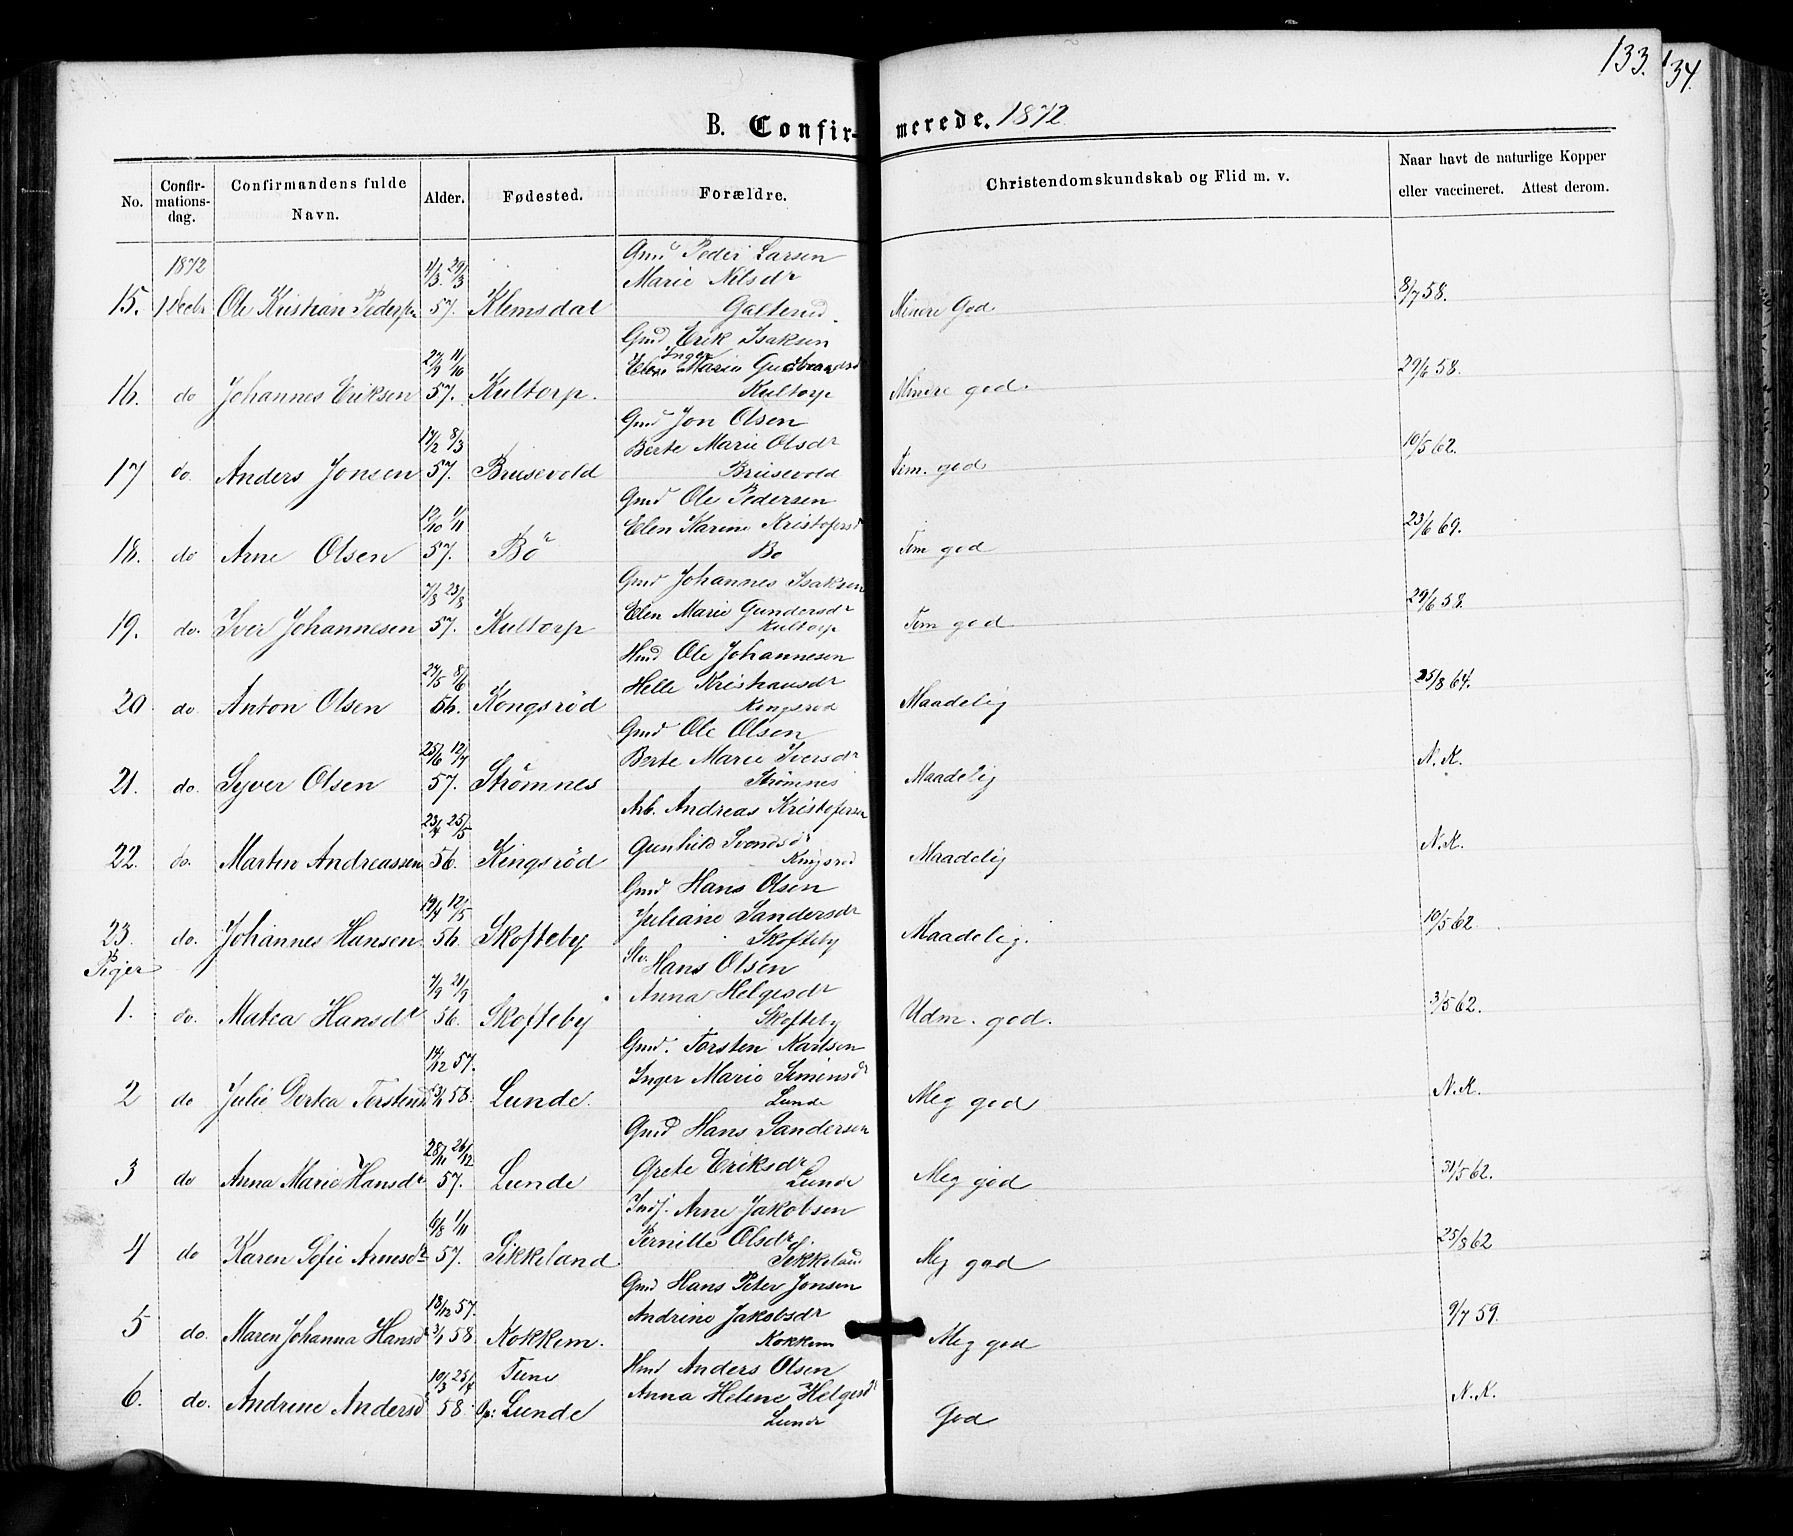 133.
134.
B. Confirmerede. 1872
No. Confirmationsdag. Confirmandens fulde Navn. Alder. Fødested. Forældre. Christendomskundskab og Flid m. v. Naar havt de naturlige Kopper eller vaccineret. Attest derom.
1872 4/3 29/3 Gmd Peder Larsen
Marie Nilsdr
15. 1 Decbr Ole Kristian Pedersen 57. Klemsdal Galterud. Mindre God 8/7 58.
Gmd Erik Isaksen
27/9 11/10 Inger Marie Gudbrandsd
16. do Johannes Eriksen 57. Kultorp. Kultorp Mindre god. 29/6 58.
Gmd Jon Olsen
17/2 8/3 Berte Marie Olsdr
17 do. Anders Jonsen 57. Brusevold Brusevold Tem. god 10/5 62.
Gmd Ole Pedersen
12/10 1/11 Elen Karine Kristofersd
18. do Arne Olsen 57. Bö Bö Tem god 23/6 69.
Gmd Johannes Isaksen
7/8 23/8 Elen Marie Gundersdr
19. do. Iver Johannesen 57. Kultorp Kultorp Tem god 29/6 58.
Hmd Ole Johannesen
27/5 8/6 Helle Kristiansdr
20 do. Anton Olsen 56. Kongsröd Kongsröd Maadelig 25/8 64.
Gmd Ole Olsen
25/6 12/7 Berte Marie Iversdr
21. do. Syver Olsen 57. Strømnes Strømnes Maadelig N. K.
Arb. Andreas Kristofersen
23/4 25/5 Gunhild Svendsdr
22. do. Martin Andreassen 56. Kingsröd Kingsröd Maadelig N. K.
Gmd Hans Olsen
19/4 12/5 Juliane Sandersdr
23. do. Johannes Hansen 56. Skofteby Skofteby Maadelig. 10/5 62.
Piger
Slv. Hans Olsen
7/9 21/9 Anna Helgesdr
1. do. Matea Hansdr 56. Skofteby Skofteby Udm. god. 31/5 62.
Gmd. Torsten Karlsen
14/12 57. Inger Marie Simensdr
2 do Julie Dortea Torstensd 13/1 58. Lunde. Lunde Meg god N. K.
Gmd Hans Sandersen
28/11 26/12 Grete Eriksdr
3 do Anna Marie Hansdr 57. Lunde Lunde Meg god 31/5 62.
Indf. Arne Jakobsen
6/8 1/11 Pernille Olsdr.
4 do Karen Sofie Arnesdr 57. Sikkeland Sikkeland Meg god 25/8 62
Gmd Hans Peter Jonsen
18/12 57. Andrine Jakobsdr
5 do. Maren Johanna Hansdr 3/1 58. Kokkem. Kokkem Meg god 9/7 59.
10/3 25/4 Tune Hmd Anders Olsen
Anna Helene Helgesdr
6. do. Andrine Andersd 58. Op: Lunde Lunde God N. K.